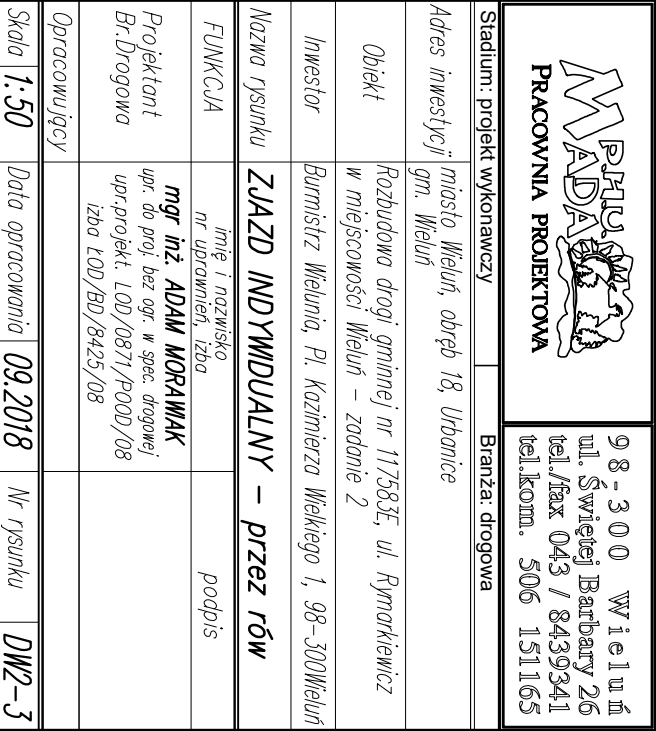 P.H.U.
MADA
PRACOWNIA PROJEKTOWA
98-300 Wieluń
ul. Świętej Barbary 26
tel./fax 043 / 8439341
tel.kom. 506 151165
Stadium: projekt wykonawczy
Branża: drogowa
Adres inwestycji
miasto Wieluń, obręb 18, Urbanice
gm. Wieluń
Obiekt
Rozbudowa drogi gminnej nr 117583E, ul. Rymarkiewicz
w miejscowości Wieluń - zadanie 2
Inwestor
Burmistrz Wielunia, Pl. Kazimierza Wielkiego 1, 98-300Wieluń
Nazwa rysunku
ZJAZD INDYWIDUALNY - przez rów
FUNKCJA
imię i nazwisko
nr uprawnień, izba
podpis
Projektant
Br.Drogowa
mgr inż. ADAM MORAWIAK
upr. do proj. bez ogr. w spec. drogowej
upr.projekt. LOD/0871/POOD/08
izba ŁOD/BD/8425/08
Opracowujący
Skala
1:50
Data opracowania
09.2018
Nr rysunku
DW2-3